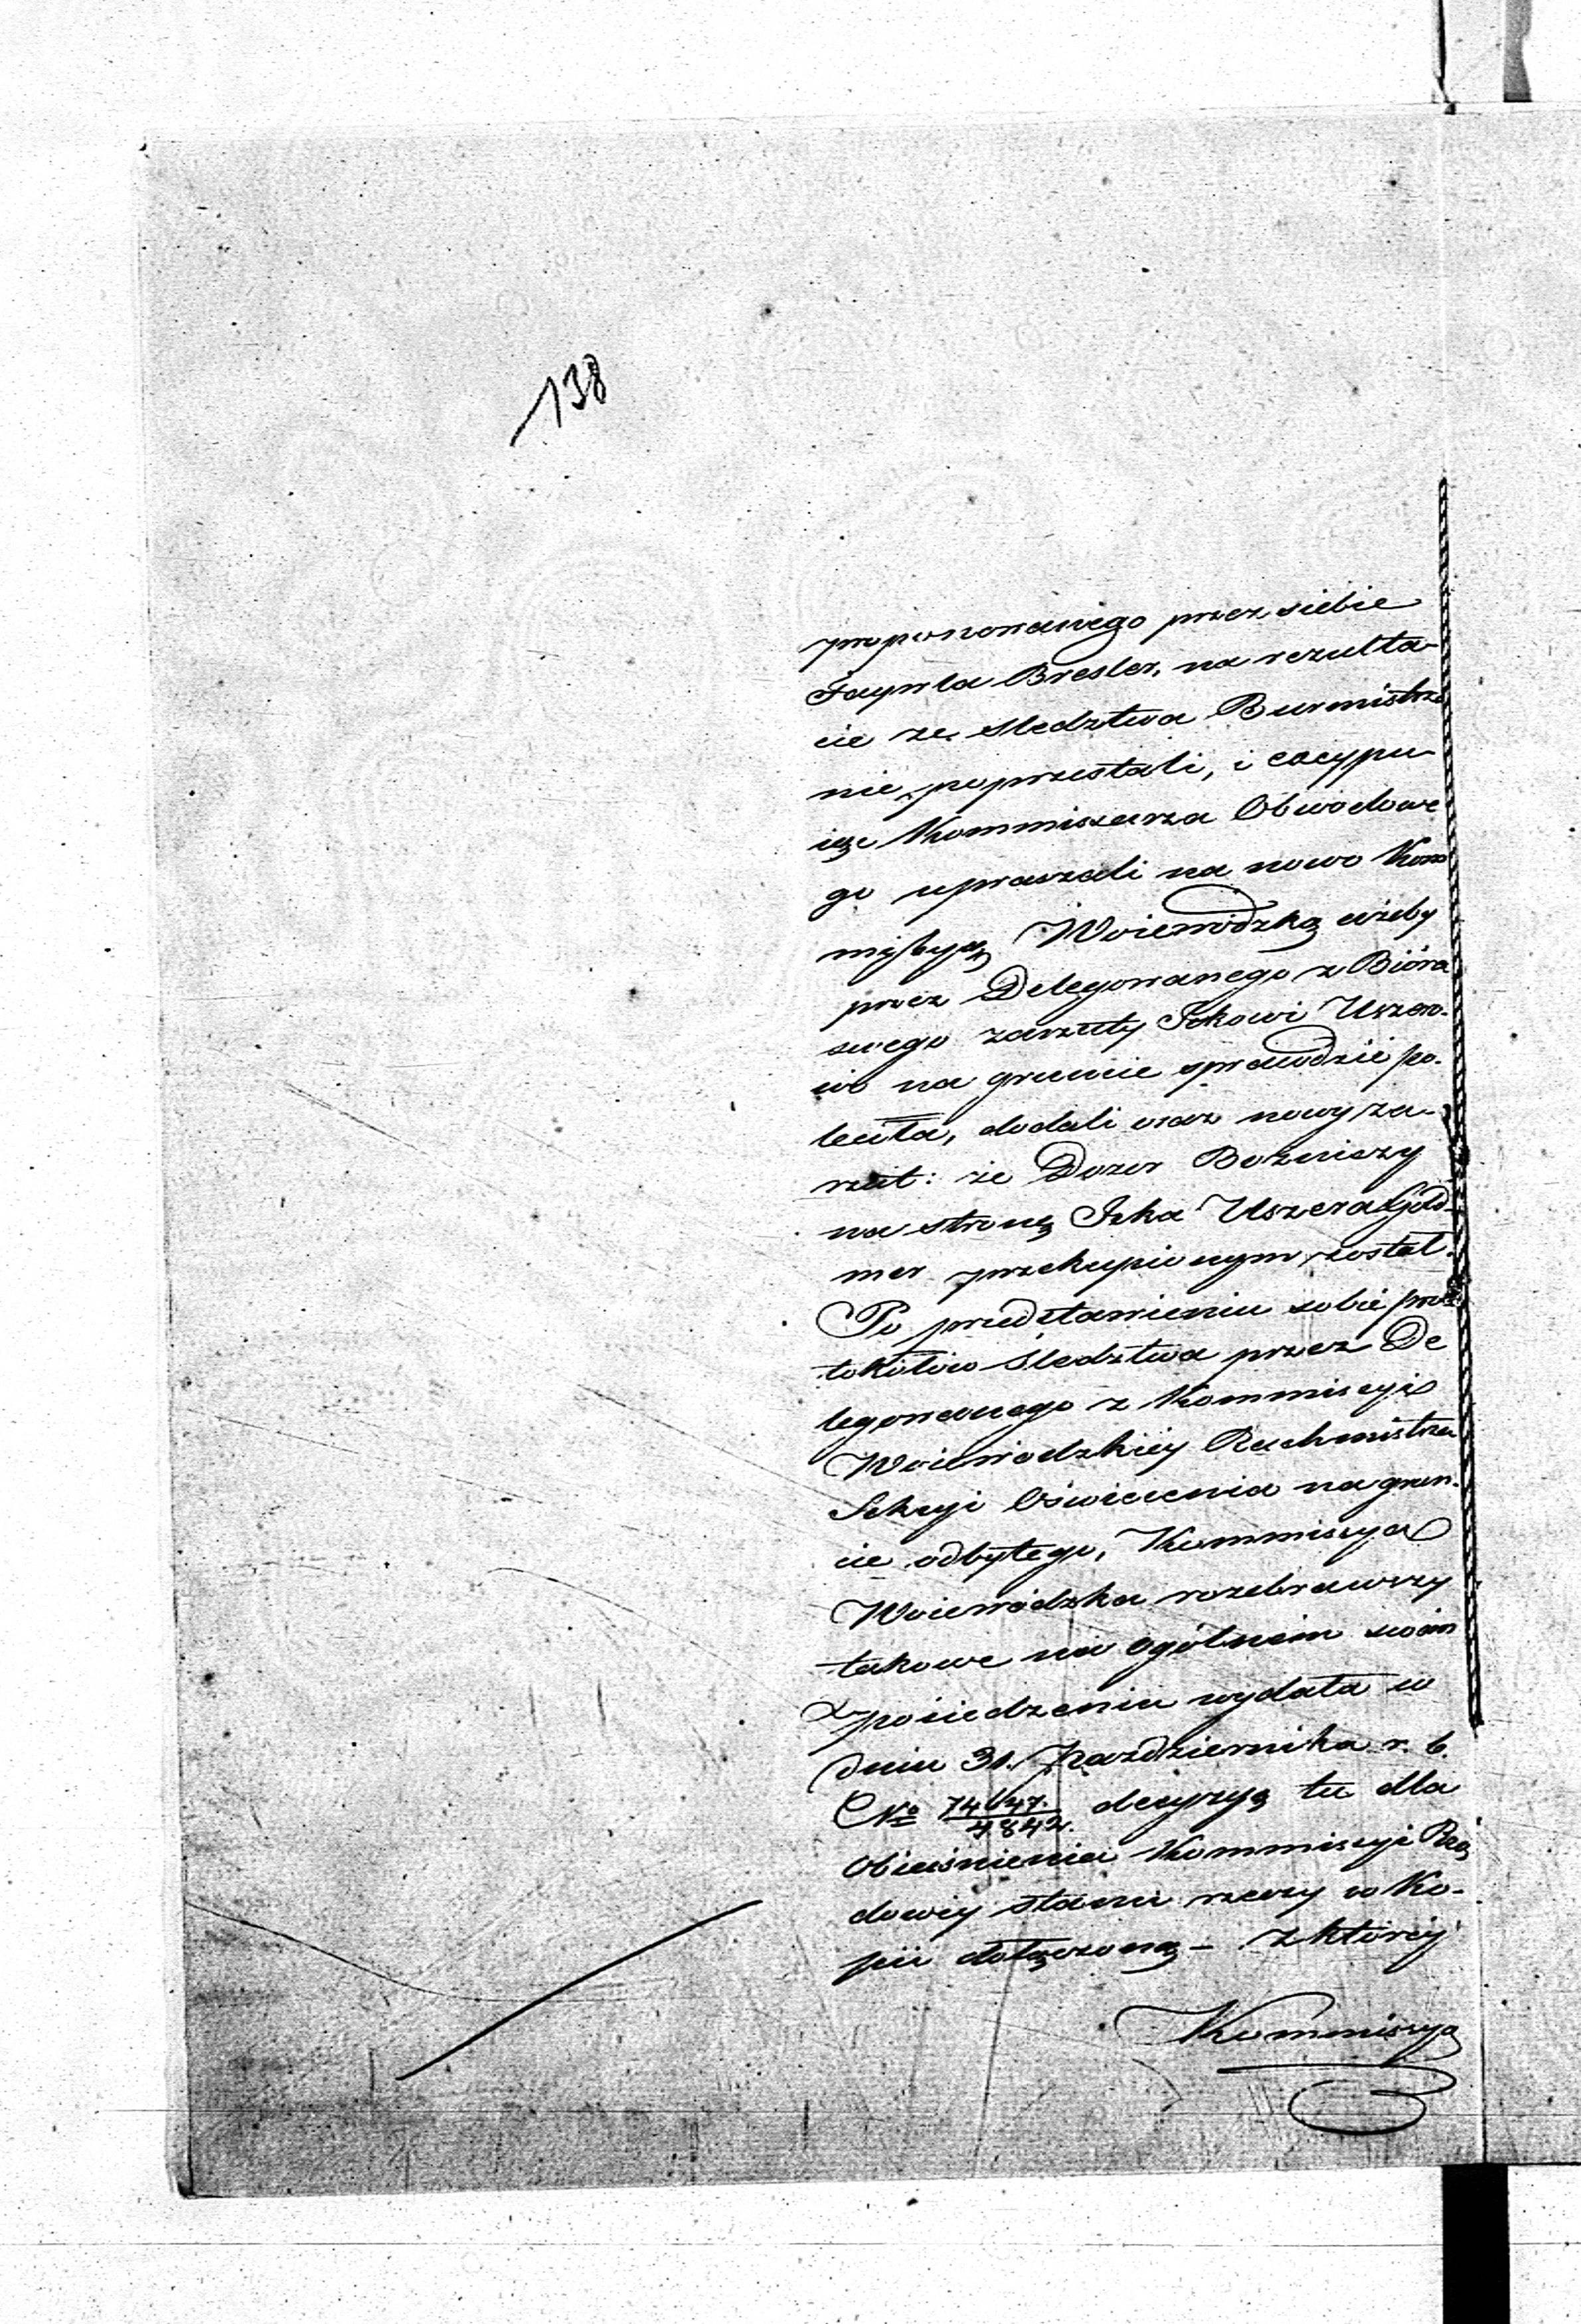 138
proponowanego przez siebie
Faywla Bresler, na rezulta-
cie ze śledztwa Burmistrza
nie poprzestali, i
Kommissarza Obwodowe
go upraszali na nowo Kom
missyą Woiewodzką ażeby
przez Delegowanego z Bióra
swego zarzuty Ickowi Uszero-
wi na gruncie sprawdzić po-
leciła, dodali oraz nowy za-
rzut: że Dozor Bożniczy
na stronę Icka Uszera Gold-
mer przekupionym został.
Po przedstawieniu sobie pro-
tokołów Śledztwa przez De
legowanego z Kommissyi
Woiewodzkiéy Rachmistrza
Sekcyi Oświecenia na grun-
cie odbytego, Kommissya
Woiewódzka rozebrawszy
takowe na ogólnem swoim
posiedzeniu wydała w
dniu 31. Października r. b.
No 74147./4842. decyzyą tu dla
Obiaśnienia Kommissyi Rzą
dowéy stanu rzeczy w Ko-
pii dołączoną – z któréy
Kommissya